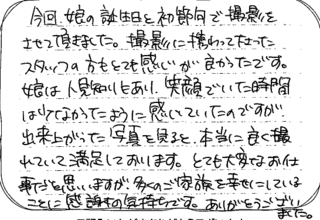 今回、娘の誕生日と初節句で撮影を
させて頂きました。撮影に携わって下さった
スタッフの方もとても感じが良かったです。
娘は人見知りもあり、笑顔でいた時間
は少なかったように感じていたのですが
出来上がった写真を見ると、本当に良く撮
れていて満足しております。とても大変なお仕
事だと思いますが、多くのご家族を幸せにしている
ことに感謝の気持ちです。ありがとうござい
ました。